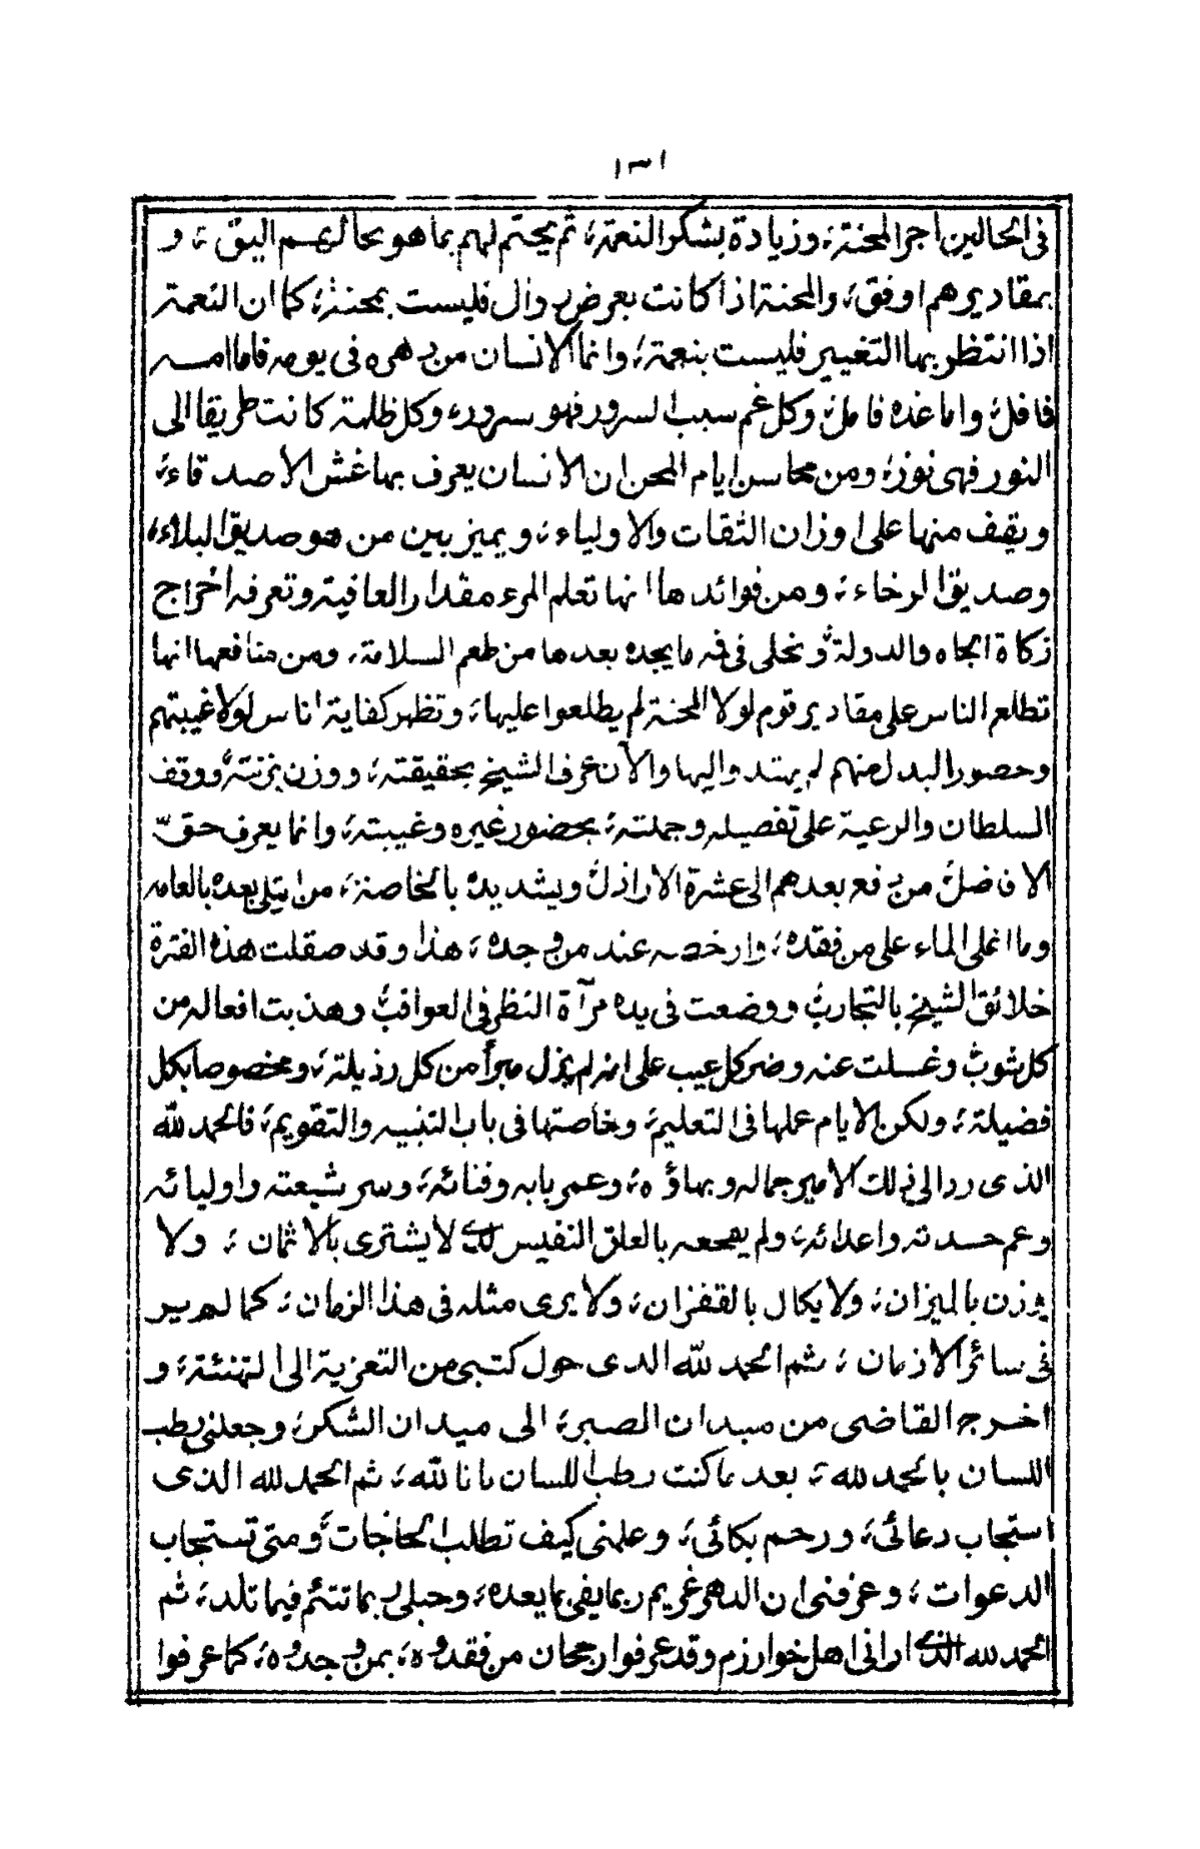 ١٣١
فى الحالين اجر المحنة، وزيادة بشكر النعمة، ثم يختم لهم بما هو بحالهم اليق، و
بمقاديرهم اوفق، والمحنة اذا كانت بعرض زوال فليست بمحنة، كما ان النعمة
اذا انتظر بها التغيير فليست بنعمة، وانما الانسان من دهره فى يومه فاما امسه
فافل، واما غده فامل، وكل غم سبب السرور فهو سرور، وكل ظلمة كانت طريقا الى
النور فهى نور، ومن محاسن ايام المحن ان الانسان يعرف بها غش الاصدقاء،
ويقف منها على اوزان الثقات والاولياء، ويميز بين من هو صديق البلاء،
وصديق الرخاء، ومن فوائدها انها تعلم المرء مقدار العافية وتعرفه اخراج
زكاة الجاه والدولة، وتحلى فى فمه ما يجده بعدها من طعم السلامة، ومن منافعها انها
تطلع الناس على مقادير قوم لولا المحنة لم يطلعوا عليها، وتظهر كفاية اناس لولا غيبتهم
وحضور البدل منهم لم يهتدوا اليها والآن عرف الشيخ بحقيقته، ووزن بزنته، ووقف
السلطان والرعية على تفصيله وجملته، بحضور غيره وغيبته، وانما يعرف حقّ
الافاضل، من دفع بعدهم الى عشرة الاراذل، ويشد يده بالخاصة، من ابتلى بعده بالعامه
وما اغلى الماء على من فقده، وارخصه عند من وجده، هذا وقد صقلت هذه الفترة
خلائق الشيخ بالتجارب، ووضعت فى يده مرآة النظر فى العواقب، وهذبت افعاله من
كل شوب، وغسلت عنه وضر كل عيب على انه لم يزل مبرأ من كل رذيلة، ومخصوصا بكل
فضيلة، ولكن للايام عملها فى التعليم، وخاصتها فى باب التنبيه والتقويم، فالحمد لله
الذى رد الى ذلك الامير جماله وبهاؤه، وعمر بابه وفنائه، وسر شيعته واوليائه
وغم حسدته واعدائه، ولم يفجعه بالعلق النفيس الذى لا يشترى بالاثمان، ولا
يوزن بالميزان، ولا يكال بالقفزان، ولا يرى مثله فى هذا الزمان، كما لم ير
فى سائر الازمان، ثم الحمد لله الذى حول كتبى من التعزية الى التهنئة، و
اخرج القاضى من ميدان الصبر، الى ميدان الشكر، وجعلنى رطب
اللسان بالحمد لله، بعد ما كنت رطب اللسان بانا لله، ثم الحمد لله الذى
استجاب دعائى، ورحم بكائى، وعلمنى كيف تطلب الحاجات، ومتى تستجاب
الدعوات، وعرفنى ان الدهر غريم ربما يفى بما يعده، وحبلى ربما تتئم فيما تلد، ثم
الحمد لله الذى ارانى اهل خوارزم وقد عرفوا رجحان من فقدوه، بمن وجدوه، كما عرفوا